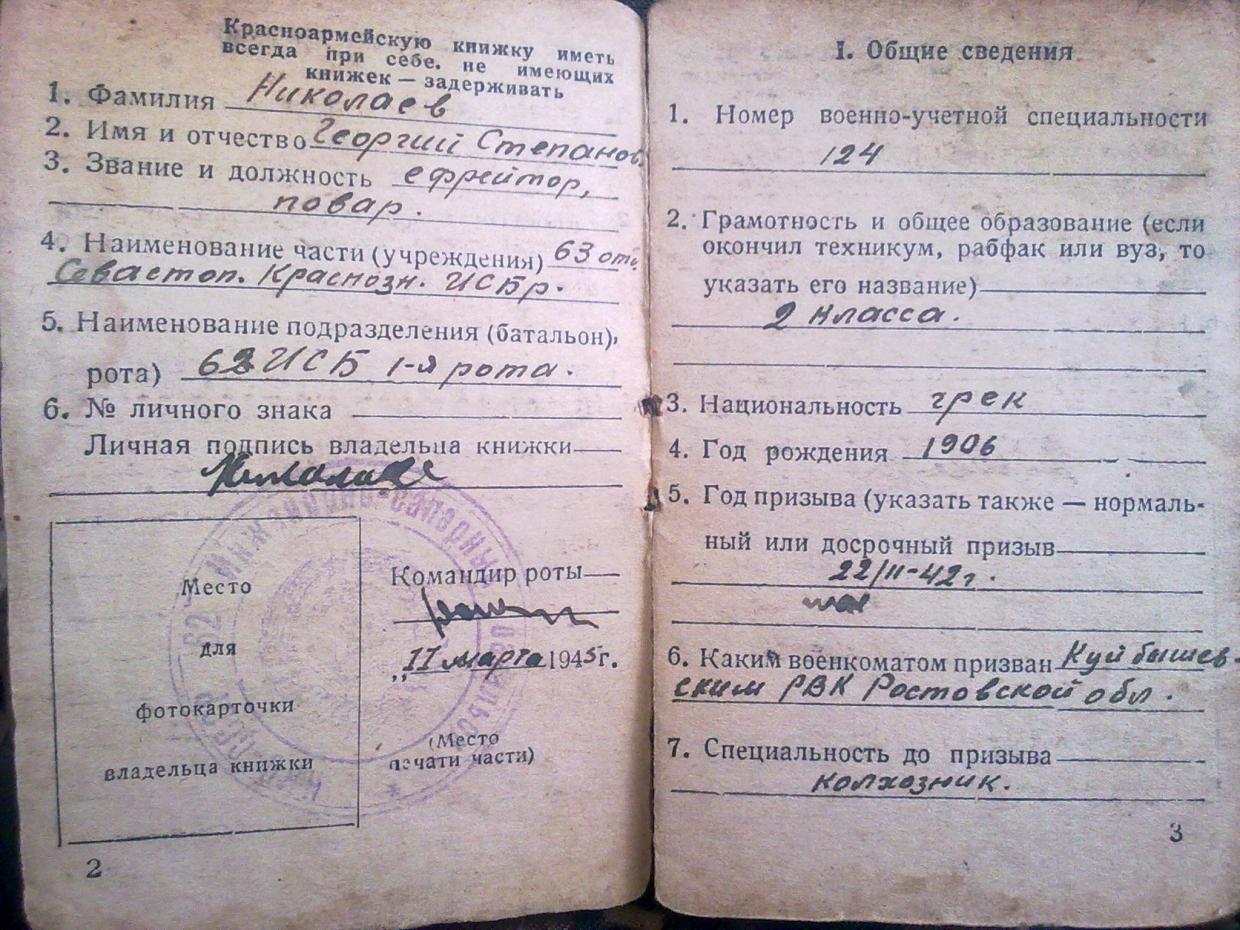 Красноармейскую книжку иметь
всегда при себе. не имеющих
книжек — задерживать
1. Фамилия Николаев
2. Имя и отчество Георгий Степанов.
3. Звание и должность ефрейтор,
повар.
4. Наименование части (учреждения) 63 отд.
Севастоп. Краснозн. ИСБр.
5. Наименование подразделения (батальон),
рота) 62 ИСБ 1-я рота.
6. № личного знака
Личная подпись владельца книжки
Место
для
фотокарточки
владельца книжки
Командир роты
„11 марта 1945г.
(Место
печати части)
62 Инженерно-саперный
2
I. Общие сведения
1. Номер военно-учетной специальности
124
2. Грамотность и общее образование (если
окончил техникум, рабфак или вуз, то
указать его название)
2 класса.
3. Национальность грек
4. Год рождения 1906
5. Год призыва (указать также — нормаль-
ный или досрочный призыв
22/II-42г.
6. Каким военкоматом призван Куйбышев-
ским РВК Ростовской обл.
7. Специальность до призыва
колхозник.
3